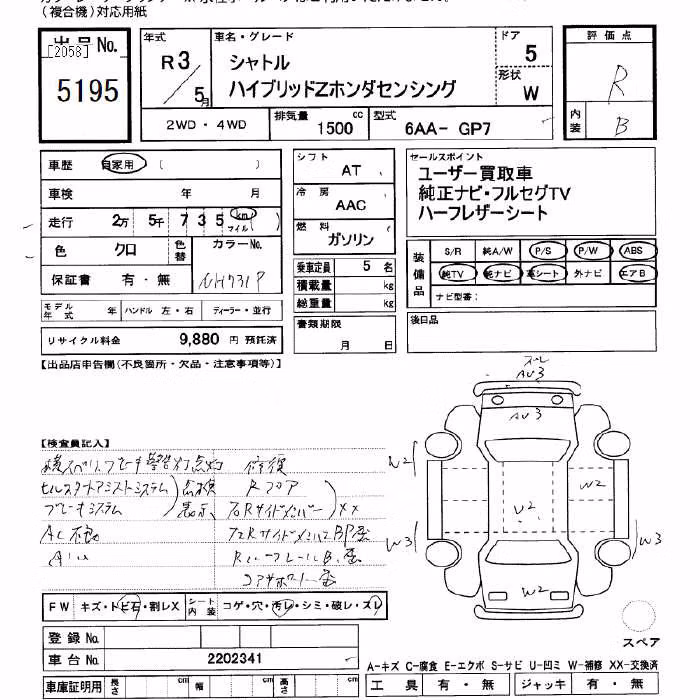 (複合機)対応用紙
出品No.
[2058]
5195
年式
R3
5月
車名・グレード
シャトル
ハイブリッドZホンダセンシング
ドア
5
形状
W
評価点
R
内装
B
2WD・4WD
排気量
1500
cc
型式
6AA- GP7
車歴
自家用
( )
車検
年
月
走行
2万
5千
7 3 5
km
マイル
( )
色
クロ
色替
カラーNo.
NH731P
保証書
有・無
モデル年式
年
ハンドル
左・右
ディーラー・並行
リサイクル料金
9,880
円
預託済
シフト
AT
冷房
AAC
燃料
ガソリン
乗車定員
5
名
積載量
kg
総重量
kg
書類期限
月
日
セールスポイント
ユーザー買取車
純正ナビ・フルセグTV
ハーフレザーシート
装備品
S/R
純A/W
P/S
P/W
ABS
純TV
純ナビ
革シート
外ナビ
エアB
ナビ型番:
後日品
【出品店申告欄(不良箇所・欠品・注意事項等)】
【検査員記入】
修復
ヒルスタートアシストシステム
点検
Rフロア
ブレーキシステム
表示、
XX
AC不動
AU3
AU3
W2
W2
U2
W3
W3
W2
FW
キズ・トビ石・割レX
シート内装
コゲ・穴・汚レ・シミ・破レ・ズレ
登録No.
車台No.
2202341
車庫証明用
長さ
cm
幅
cm
高さ
cm
スペア
A-キズ C-腐食 E-エクボ S-サビ U-凹ミ W-補修 XX-交換済
工具
有・無
ジャッキ
有・無